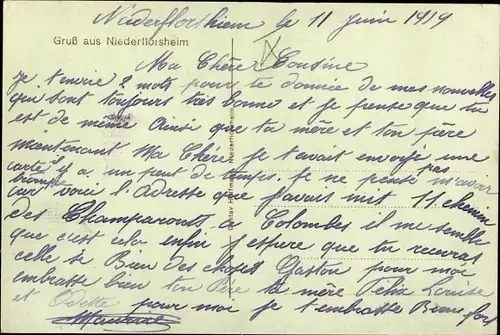 Niederflorsheim le 11 Juin 1919
Gruß aus Niederflörsheim
Ma Chère Cousine
Je t'envoie 2 mots pour te donnée de mes nouvelle
qui sont toujours très bonne et je pense que tu
est de même Ainsi que ta mère et ton père
Maintenant Ma Chère je t'avait envoyé une
carte il y a un peut de temps. Je ne pense pas m'avoir
trompé car voici l'Adresse que j'avais mit 11 chemin
des Champarons à Colombes il me semble
que c'est cela enfin j'espère que tu recevras
celle si Bien des choses Gaston pour moi
embrasse bien ton Père ta mère Félix Louise
et Odette pour moi je t'embrasse Bien for
Maurice